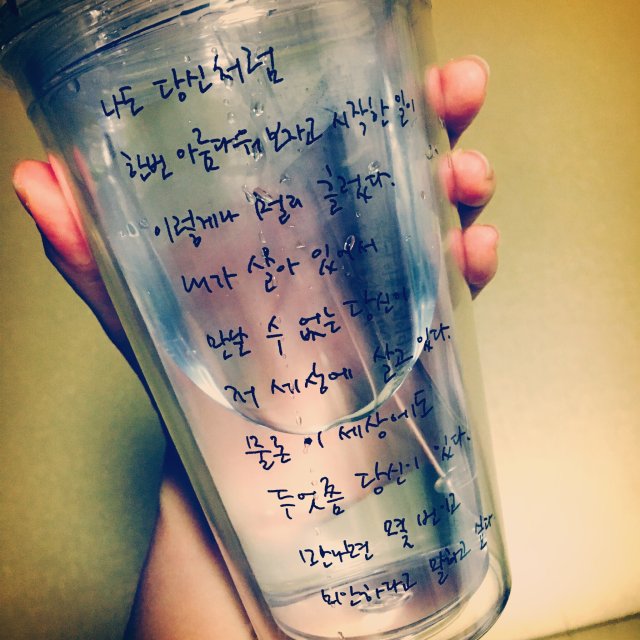 나도 당신처럼
한번 아름다워 보자고 시작한 일이
이렇게나 멀리 흘렀다.
내가 살아 있어서
만날 수 없는 당신이
저 세상에 살고 있다.
물론 이 세상에도
두엇쯤 당신이 있다.
만나면 몇 번이고
미안하다고 말하고 싶다.